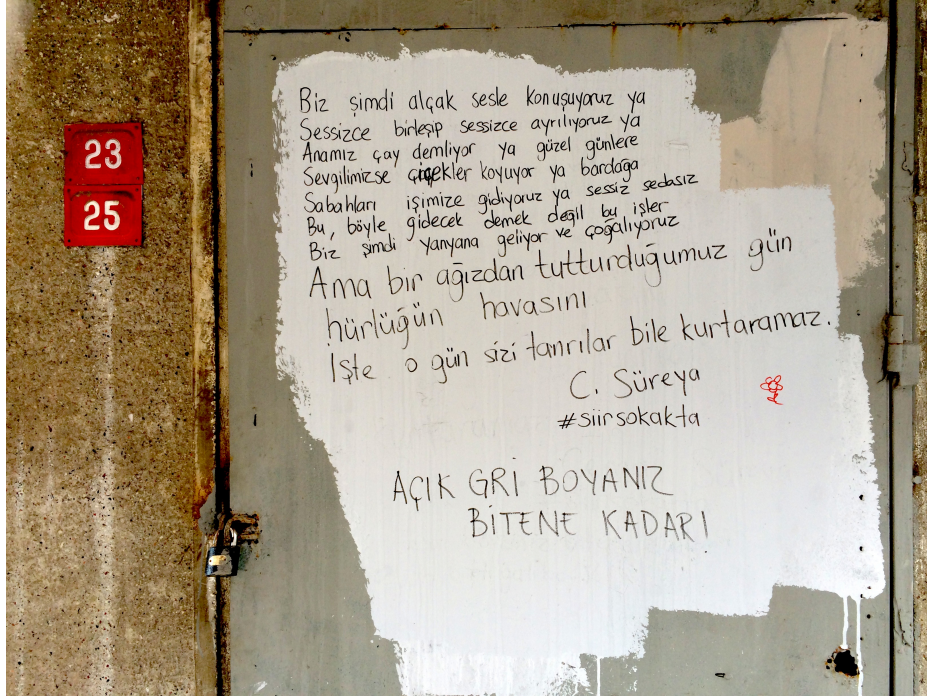 23
25
Biz şimdi alçak sesle konuşuyoruz ya
Sessizce birleşip sessizce ayrılıyoruz ya
Anamız çay demliyor ya güzel günlere
Sevgilimizse çiçekler koyuyor ya bardağa
Sabahları işimize gidiyoruz ya sessiz sedasız
Bu, böyle gidecek demek değil bu işler
Biz şimdi yanyana geliyor ve çoğalıyoruz
Ama bir ağızdan tutturduğumuz gün
hürlüğün havasını
İşte o gün sizi tanrılar bile kurtaramaz.
C. Süreya
#siirsokakta
AÇIK GRİ BOYANIZ
BİTENE KADAR!